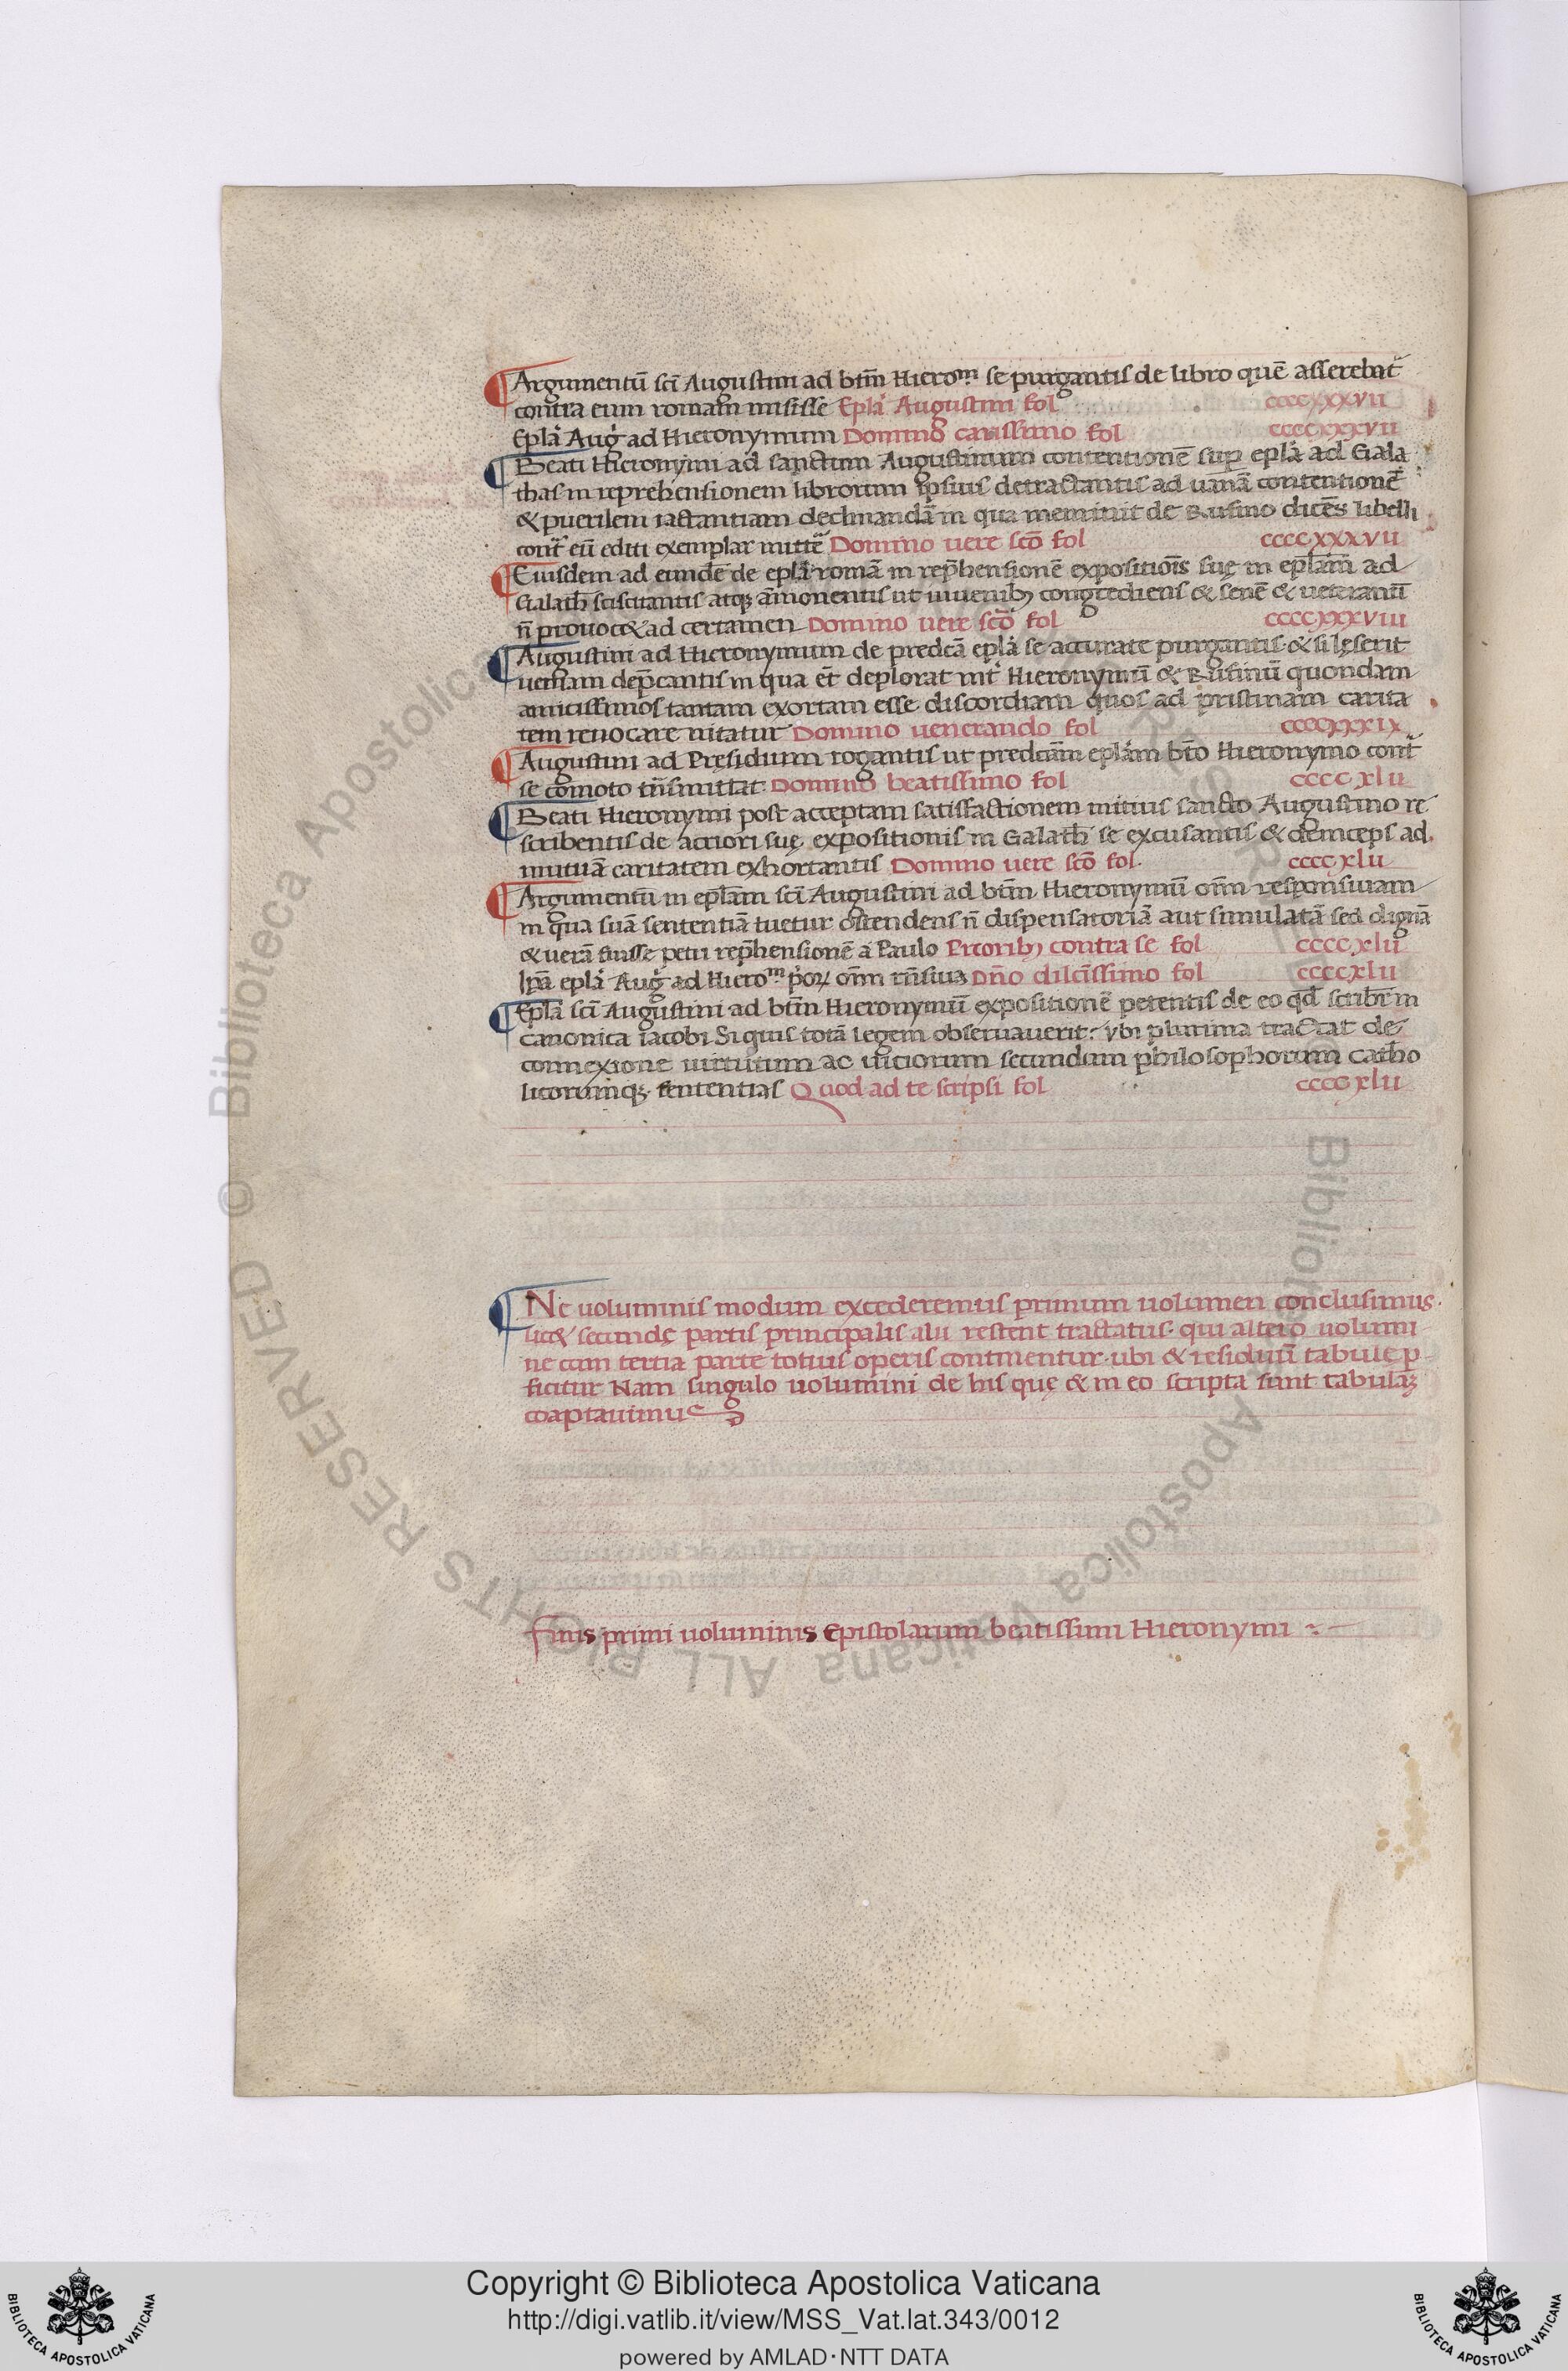 ¶ Argumentū scī Augustini ad btm̄ Hierom̅ se purgantis de libro quē asserebat̄
contra eum romam misisse Epla Augustini fol ccccxxxvii
Epla Aug ad Hieronymum Domino carissimo fol ccccxxxvii
¶ Beati Hieronymi ad sanctum Augustinum contentionē sup epla ad Gala
thas in reprehensionem librorum ipsius detractantis ad uanā contentionē
& puerilem iactantiam declinandā in qua meminit de Rufino dicēs libelli
cont̄ eū editi exemplar mittē Domino uere scō fol ccccxxxvii
¶ Eiusdem ad eundē de epla romā in rep̄hensionē expositiōis suę in epl̄am ad
Galath̄ sciscitantis atq; āmonentis ut iuuenib; congrediens & senē & ueteranū
n̄ prouocet ad certamen Domino uere scō fol ccccxxxviii
¶ Augustini ad Hieronymum de predcā epla se accurate purgantis & si lęserit
ueniam dep̄cantis in qua et̄ deplorat int̄ Hieronymū & Rufinū quondam
amicissimos tantam exortam esse discordiam quos ad pristinam carita
tem reuocare nitatur Domino uenerando fol ccccxxxix
¶ Augustini ad Pręsidium rogantis ut predcam̄ eplam bt̄o Hieronymo cont̄
se comoto tn̄smittat Domino beatissimo fol ccccxlii
¶ Beati Hieronymi post acceptam satisfactionem mitius sancto Augustino re
scribentis de acriori suę expositionis in Galath̄ se excusantis & deinceps ad
mutuā caritatem exhortantis Domino uere scō fol ccccxlii
¶ Argumentū in epl̄am scī Augustini ad btm̄ Hieronymū om̄m responsiuam
in qua suā sententiā tuetur ostendens n̄ dispensatoriā aut simulatā sed dignā
& uerā fuisse petri rep̄hensionē a Paulo Precorib; contra se fol ccccxlii
Ipā epla Aug ad Hierom̅ p̄oꝝ om̄m rn̄siua Dn̄o dilcīssimo fol ccccxlii
¶ Epla scī Augustini ad btm̄ Hieronymū expositionē petentis de eo qd̄ scribit̄ in
canonica iacobi Si quis totā legem obseruauerit: Vbi plurima tractat de
connexione uirtutum ac uiciorum secundum philosophorum catho
licorumq; sententias Quod ad te scripsi fol ccccxlii
¶ Ne uoluminis modum excederemus primum uolumen conclusimus.
licet secundę partis principalis alii restent tractatus. qui altero uolumi
ne cum tertia parte totius operis continentur. ubi & residuū tabulę p
ficitur Nam singulo uolumini de his quę & in eo scripta sunt tabulaȝ
coaptauimus
Finis primi uoluminis Epistolarum beatissimi Hieronymi
Copyright © Biblioteca Apostolica Vaticana
http://digi.vatlib.it/view/MSS_Vat.lat.343/0012
powered by AMLAD·NTT DATA